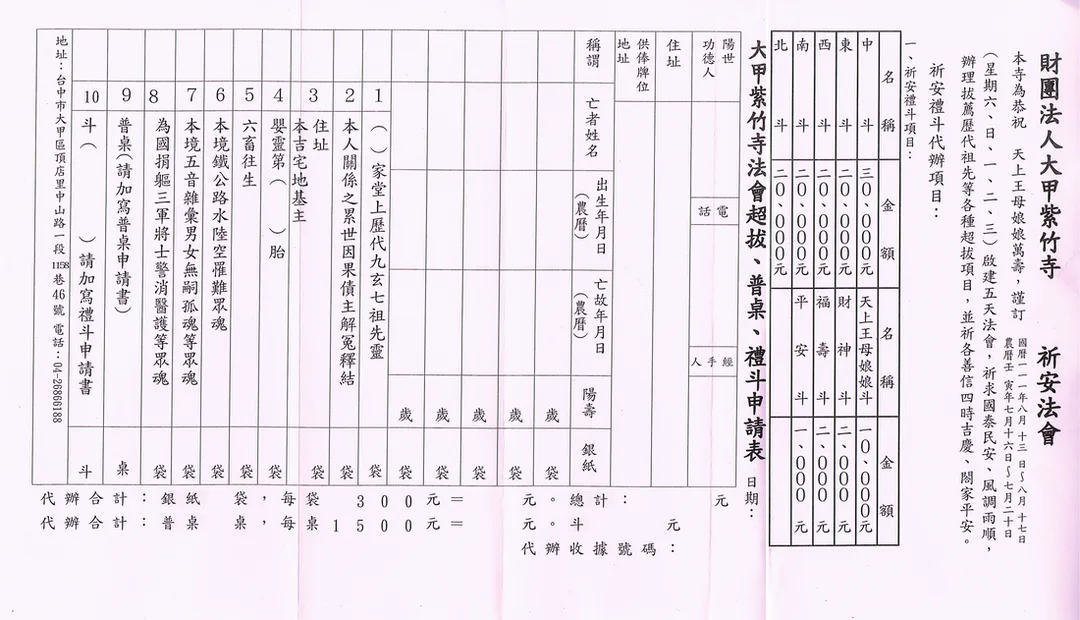 財團法人大甲紫竹寺 祈安法會
本寺為恭祝 天上王母娘娘萬壽，謹訂 國曆一一一年八月十三日～八月十七日
農曆壬寅年七月十六日～七月二十日
（星期六、日、一、二、三）啟建五天法會，祈求國泰民安、風調雨順，
辦理拔薦歷代祖先等各種超拔項目，並祈各善信四時吉慶、閤家平安。
祈安禮斗代辦項目：
一、祈安禮斗項目：
名稱 金額 名稱 金額
中斗 三０、０００元 天上王母娘娘斗 一０、０００元
東斗 二０、０００元 財神斗 二、０００元
西斗 二０、０００元 福壽斗 二、０００元
南斗 二０、０００元 平安斗 一、０００元
北斗 二０、０００元
大甲紫竹寺法會超拔、普桌、禮斗申請表 日期：
陽世功德人 電話 經手人 元
住址
供俸牌位地址
總計： 元
稱謂 亡者姓名 出生年月日（農曆） 亡故年月日（農曆） 陽壽 銀紙
歲 袋
歲 袋
歲 袋
歲 袋
歲 袋
1 （ ）家堂上歷代九玄七祖先靈 袋
2 本人關係之累世因果債主解冤釋結 袋
3 住址
本吉宅地基主 袋
4 嬰靈第（ ）胎 袋
5 六畜往生 袋
6 本境鐵公路水陸空罹難眾魂 袋
7 本境五音雜彙男女無嗣孤魂等眾魂 袋
8 為國捐軀三軍將士警消醫護等眾魂 袋
9 普桌（請加寫普桌申請書） 桌
10 斗（ ）請加寫禮斗申請書 斗
地址：台中市大甲區頂店里中山路一段1158巷46號 電話：04-26866188
代辦合計：銀紙 袋，每袋 300元＝ 元。總計： 元
代辦合計：普桌 桌，每桌1500元＝ 元。斗 元
代辦收據號碼：